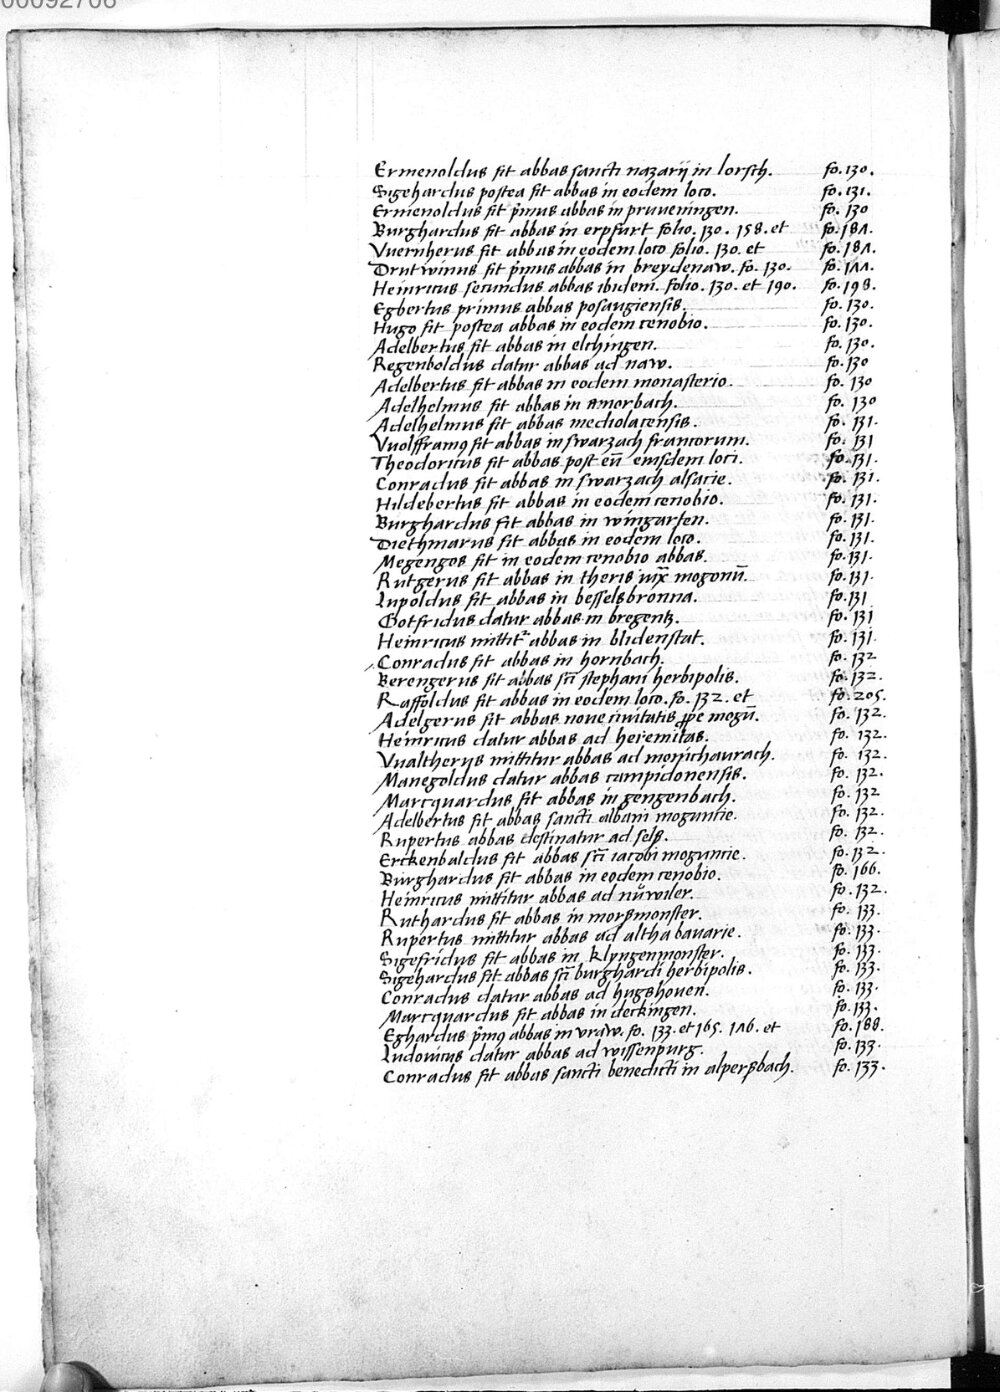 00092706
Ermenoldus fit abbas sancti nazarij in lorsch. fo. 130.
Sigehardus postea fit abbas in eodem loco. fo. 131.
Ermenoldus fit p̄mus abbas in pruveningen. fo. 130
Burghardus fit abbas in erpfurt folio. 130. 158. et fo. 181.
Vuernherus fit abbas in eodem loco folio. 130. et fo. 181.
Drutwinus fit p̄mus abbas in breydenaw. fo. 130. fo. 111.
Heinricus secundus abbas ibidem. folio. 130. et 190. fo. 198.
Egbertus primus abbas posaugiensis. fo. 130.
Hugo fit postea abbas in eodem cenobio. fo. 130.
Adelbertus fit abbas in elchingen. fo. 130.
Regenboldus datur abbas ad naw. fo. 130
Adelbertus fit abbas in eodem monasterio. fo. 130
Adelhelmus fit abbas in amorbach. fo. 130
Adelhelmus fit abbas mediolacensis. fo. 131.
Vuolfframꝯ fit abbas in swarzach francorum. fo. 131
Theodoricus fit abbas post eū eiusdem loci. fo. 131.
Conradus fit abbas in swarzach alsacie. fo. 131.
Hildebertus fit abbas in eodem cenobio. fo. 131.
Burghardus fit abbas in wingarten. fo. 131.
Diethmarus fit abbas in eodem loco. fo. 131.
Megengos fit in eodem cenobio abbas. fo. 131.
Rutgerus fit abbas in theris iux̄ mogonū. fo. 131.
Lupoldus fit abbas in besselsbronna. fo. 131
Gotfridus datur abbas in bregentz. fo. 131
Heinricus mittit᷑ abbas in blidenstat. fo. 131.
Conradus fit abbas in hornbach. fo. 132
Berengerus fit abbas scī stephani herbipolis. fo. 132.
Raffoldus fit abbas in eodem loco. fo. 132. et fo. 205.
Adelgerus fit abbas noue ciuitatis ꝓpe mogū. fo. 132.
Heinricus datur abbas ad heremitas. fo. 132.
Vualtherus mittitur abbas ad monichaurach. fo. 132.
Manegoldus datur abbas campidonensis. fo. 132.
Marcquardus fit abbas in gengenbach. fo. 132
Adelbertus fit abbas sancti albani moguntie. fo. 132.
Rupertus abbas destinatur ad sels. fo. 132.
Erckenbaldus fit abbas scī iacobi moguncie. fo. 132.
Burghardus fit abbas in eodem cenobio. fo. 166.
Heinricus mittitur abbas ad nuwiler. fo. 132.
Ruthardus fit abbas in morßmonster. fo. 133.
Rupertus mittitur abbas ad altha bauarie. fo. 133.
Sigefridus fit abbas in klyngenmonster. fo. 133.
Sigehardus fit abbas scī burghardi herbipolis. fo. 133.
Conradus datur abbas ad hugshouen. fo. 133.
Marcquardus fit abbas in deckingen. fo. 133.
Eghardus p̄mꝯ abbas in vraw. fo. 133. et 165. 176. et fo. 188.
Ludouicus datur abbas ad wissenpurg. fo. 133.
Conradus fit abbas sancti benedicti in alperßbach. fo. 133.